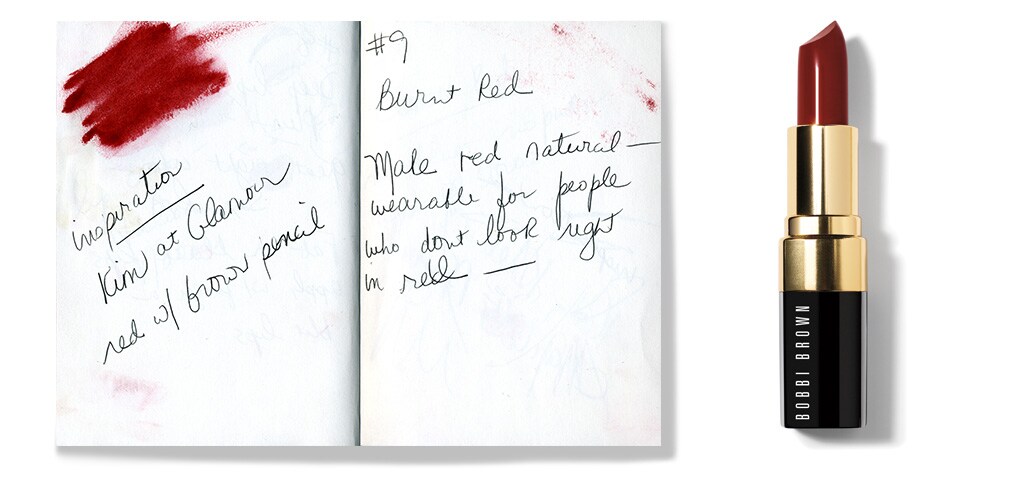 inspiration
Kim at Glamour
red w/ brown pencil
#9
Burnt Red
Make red natural—
wearable for people
who dont look right
in red —
BOBBI BROWN